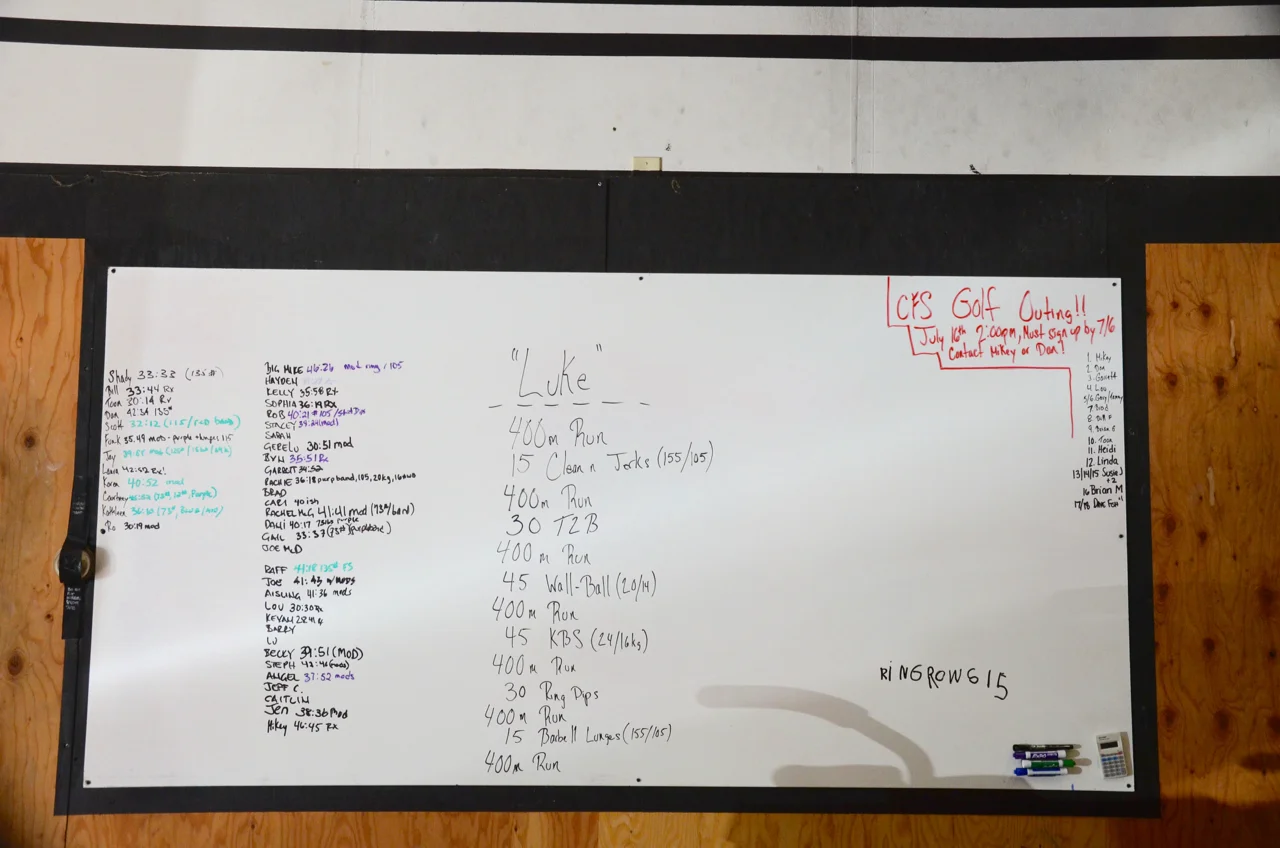 Shady 33:33 (135#)
Bill 33:44 Rx
Toon 30:14 Rx
Don 42:34 135#
Scott 32:12 (115/red band)
Funk 35.49 mods - purple 115
Jay
Laura 42:52 Rx!
Karen 40:52 mod
Courtney
Kathleen 36:30 (73#,
Ro 30:19 mod
BIG MIKE 46:26 mod ring / 105
HAYDEN
KELLY 35:58 Rx
SOPHIA 36:19 RX
ROB 40:21 #105/
STACEY 39:24 (mod)
SARAH
GERELU 30:51 mod
35:51 Rx
GARRETT 34:52
RACHIE 36:18 purp band, 105, 20kg,
BRAD
CARI 40ish
RACHEL MG, 41:41 mod (73#/band)
DAHI 40:17 purple
GAIL 33:37 (73#/purple)
JOE McD
RAFF 41:18 135# FS
JOE 41:43 w/MODS
AISLING 41:36 mods
LOU 30:30 Rx
KEVAN
BARRY
LU
BECKY 39:51 (MOD)
STEPH (mod)
ANGEL 37:52 mods
JEFF C.
CAITLIN
Jen 38:36 Mod
Mikey 46:45 Rx
"Luke"
400m Run
15 Clean n Jerks (155/105)
400m Run
30 T2B
400m Run
45 Wall-Ball (20/14)
400m Run
45 KBS (24/16kg)
400m Run
30 Ring Dips
400m Run
15 Barbell Lunges (155/105)
400m Run
CFS Golf Outing!!
July 16th 2:00pm, Must sign up by 7/6
Contact Mikey or Don!
1. Mikey
2. Don
3. Garrett
4. Lou
5/6 Gary/
7. Brad
8.
9. Brian S
10. Toon
11. Heidi
12. Linda
13/14/15 Susie J
+2
16 Brian M
17/18 Dave Fish +1
RiNGROWG15